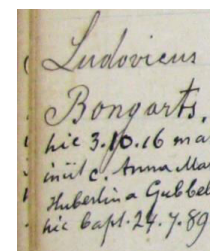 Ludovicus
Bongarts,
hic 3.10.16 ma
iniit c. Anna Ma
Hubertina Gubbel
hic bapt. 24.7.89